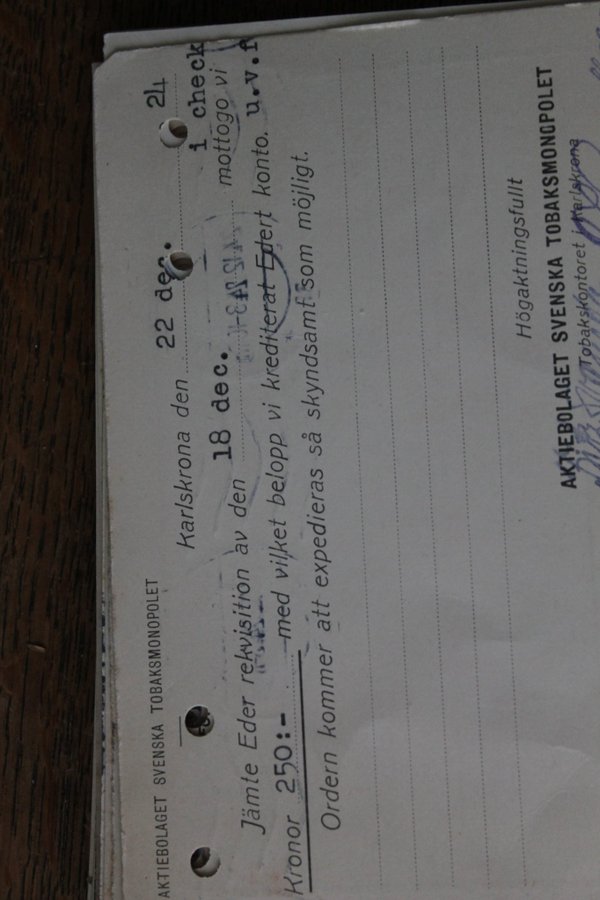 AKTIEBOLAGET SVENSKA TOBAKSMONOPOLET
Karlskrona den 22 dec. 24
Jämte Eder rekvisition av den 18 dec. i check
mottogo vi
Kronor 250:- med vilket belopp vi krediterat Edert konto. u.v.f
Ordern kommer att expedieras så skyndsamt som möjligt.
Högaktningsfullt
AKTIEBOLAGET SVENSKA TOBAKSMONOPOLET
Tobakskontoret i Karlskrona